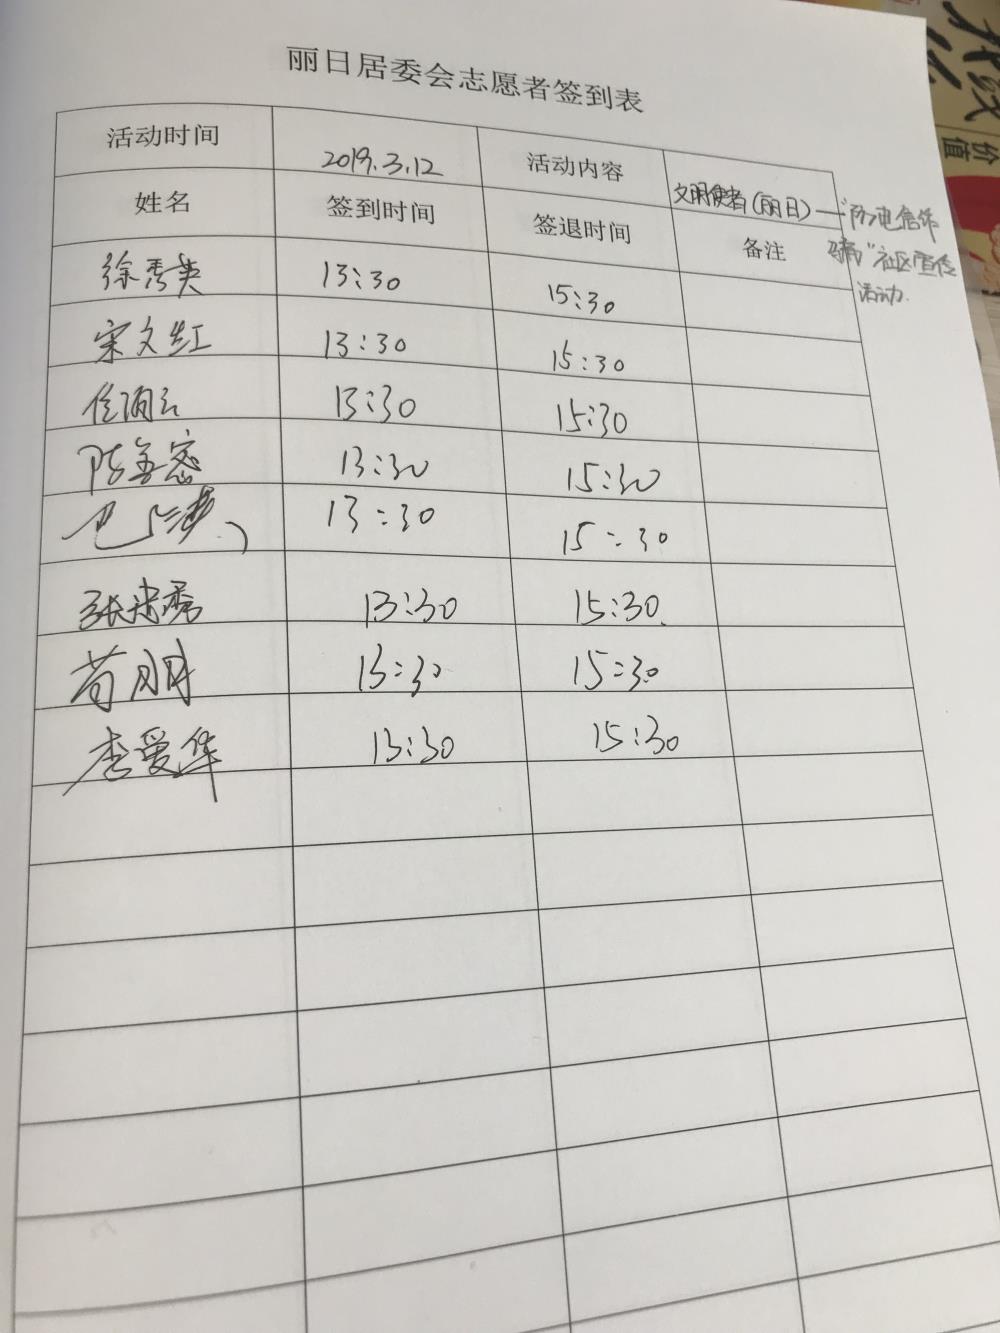 丽日居委会志愿者签到表
活动时间 2019.3.12 活动内容 文明使者(丽日)—"防电信诈
骗"社区宣传
活动.
姓名 签到时间 签退时间 备注
徐秀英 13:30 15:30
宋文红 13:30 15:30
13:30 15:30
陈 13:30 15:30
13:30 15:30
张 秀 13:30 15:30
13:30 15:30
李爱华 13:30 15:30
价值